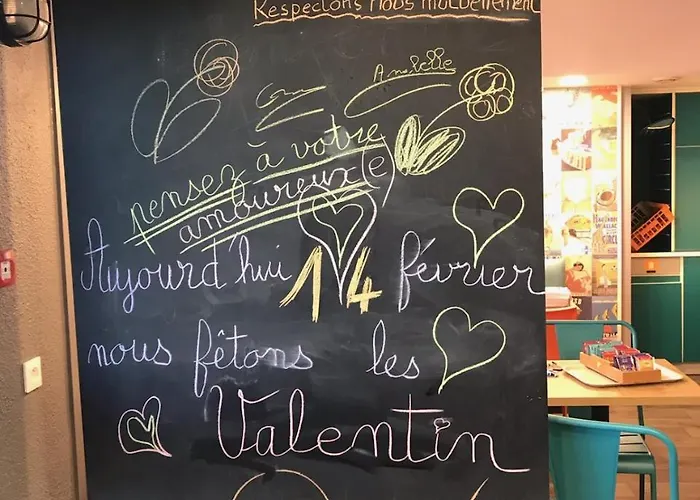 Respectons nous mutuellement
Anabelle
pensez à votre
amoureux(e)
Aujourd'hui 14 février
nous fêtons les
Valentin